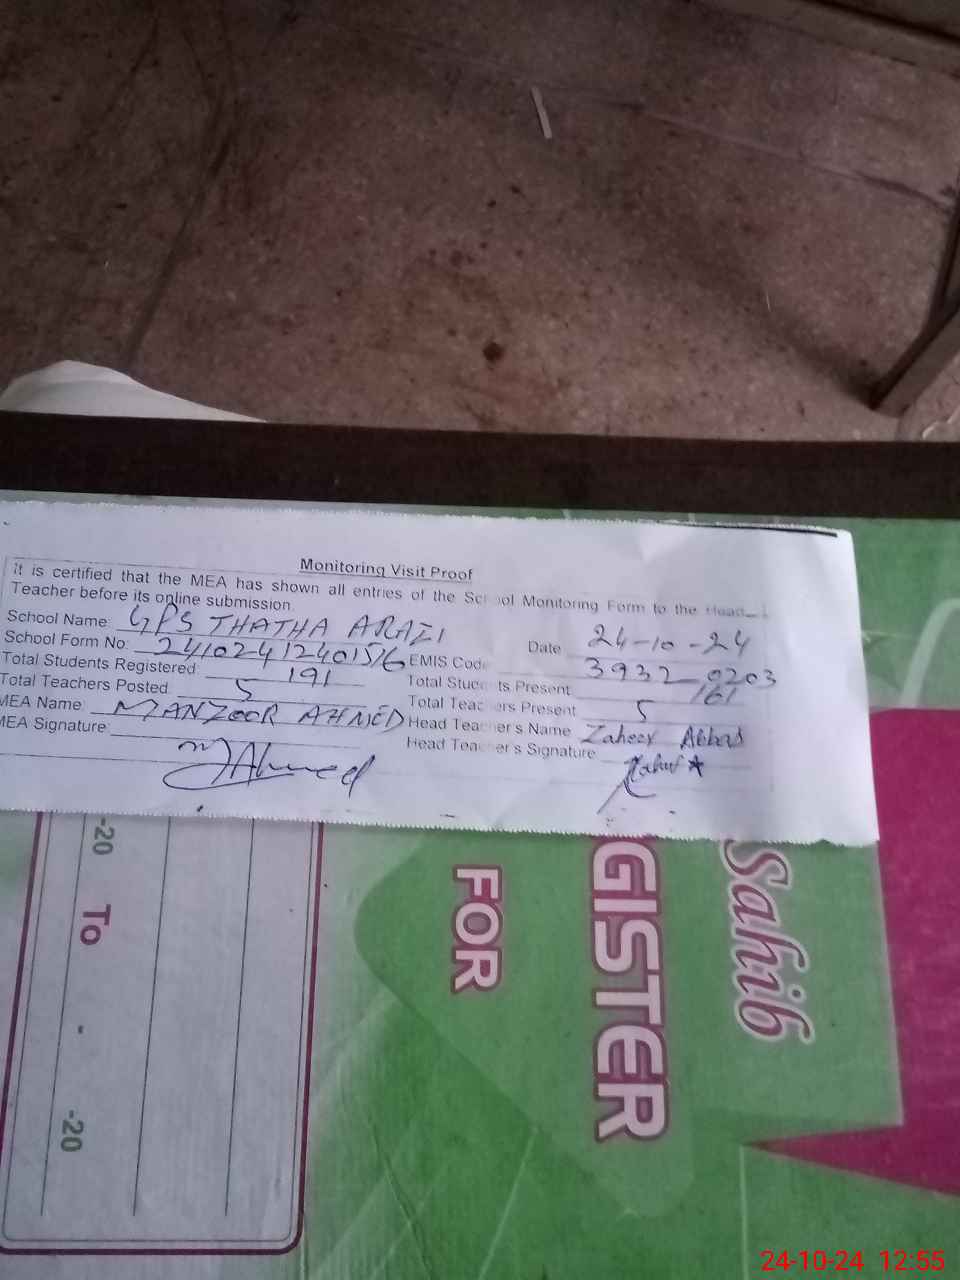 Monitoring Visit Proof
It is certified that the MEA has shown all entries of the School Monitoring Form to the Head
Teacher before its online submission.
School Name: GPS THATHA ARAZI Date 24-10-24
School Form No: 241024124015/6 EMIS Code 39320203
Total Students Registered: 191 Total Students Present 161
Total Teachers Posted: 5 Total Teachers Present 5
MEA Name: MANZOOR AHMED Head Teacher's Name Zaheer Abbas
MEA Signature: MAhmed Head Teacher's Signature
Sahib
GISTER
FOR
-20 To - -20
24-10-24 12:55